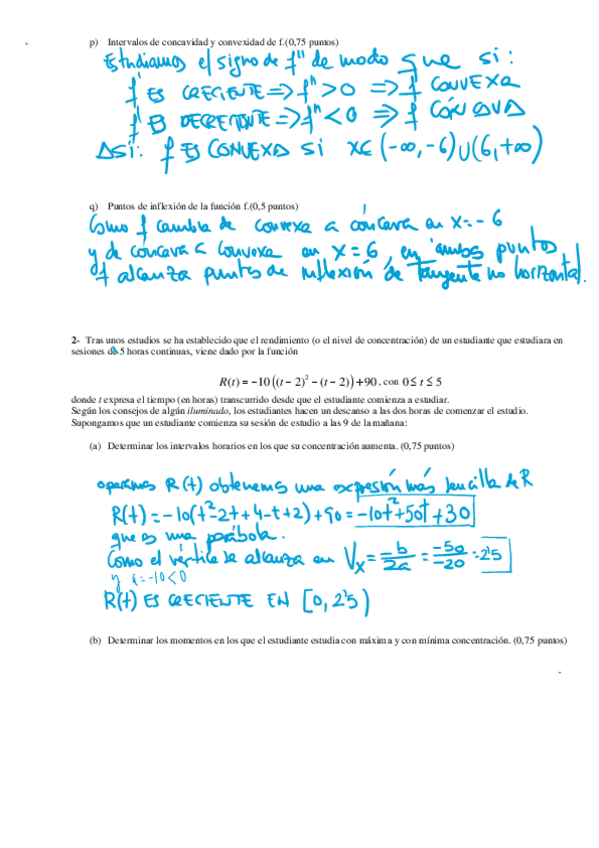 p) Intervalos de concavidad y convexidad de f.(0,75 puntos)
Estudiamos el signo de f'' de modo que si:
f' ES CRECIENTE => f'' > 0 => f CONVEXA
f' ES DECRECIENTE => f'' < 0 => f CÓNCAVA
ASÍ: f ES CONVEXA SI x∈(-∞,-6)∪(6,+∞)
q) Puntos de inflexión de la función f.(0,5 puntos)
Como f cambia de convexa a cóncava en x=-6
y de cóncava a convexa en x=6, en ambos puntos
f alcanza puntos de inflexión de tangente no horizontal.
2- Tras unos estudios se ha establecido que el rendimiento (o el nivel de concentración) de un estudiante que estudiara en
sesiones de 5 horas continuas, viene dado por la función
R(t) = −10((t − 2)² − (t − 2)) + 90, con 0 ≤ t ≤ 5
donde t expresa el tiempo (en horas) transcurrido desde que el estudiante comienza a estudiar.
Según los consejos de algún iluminado, los estudiantes hacen un descanso a las dos horas de comenzar el estudio.
Supongamos que un estudiante comienza su sesión de estudio a las 9 de la mañana:
(a) Determinar los intervalos horarios en los que su concentración aumenta. (0,75 puntos)
operamos R(t) obtenemos una expresión más sencilla de R
R(t) = -10(t²-2t+4-t+2)+90 = -10t²+50t+30
que es una parábola.
Como el vértice se alcanza en Vx = -b/2a = -50/-20 = 2'5
y a=-10<0
R(t) ES CRECIENTE EN [0, 2'5)
(b) Determinar los momentos en los que el estudiante estudia con máxima y con mínima concentración. (0,75 puntos)